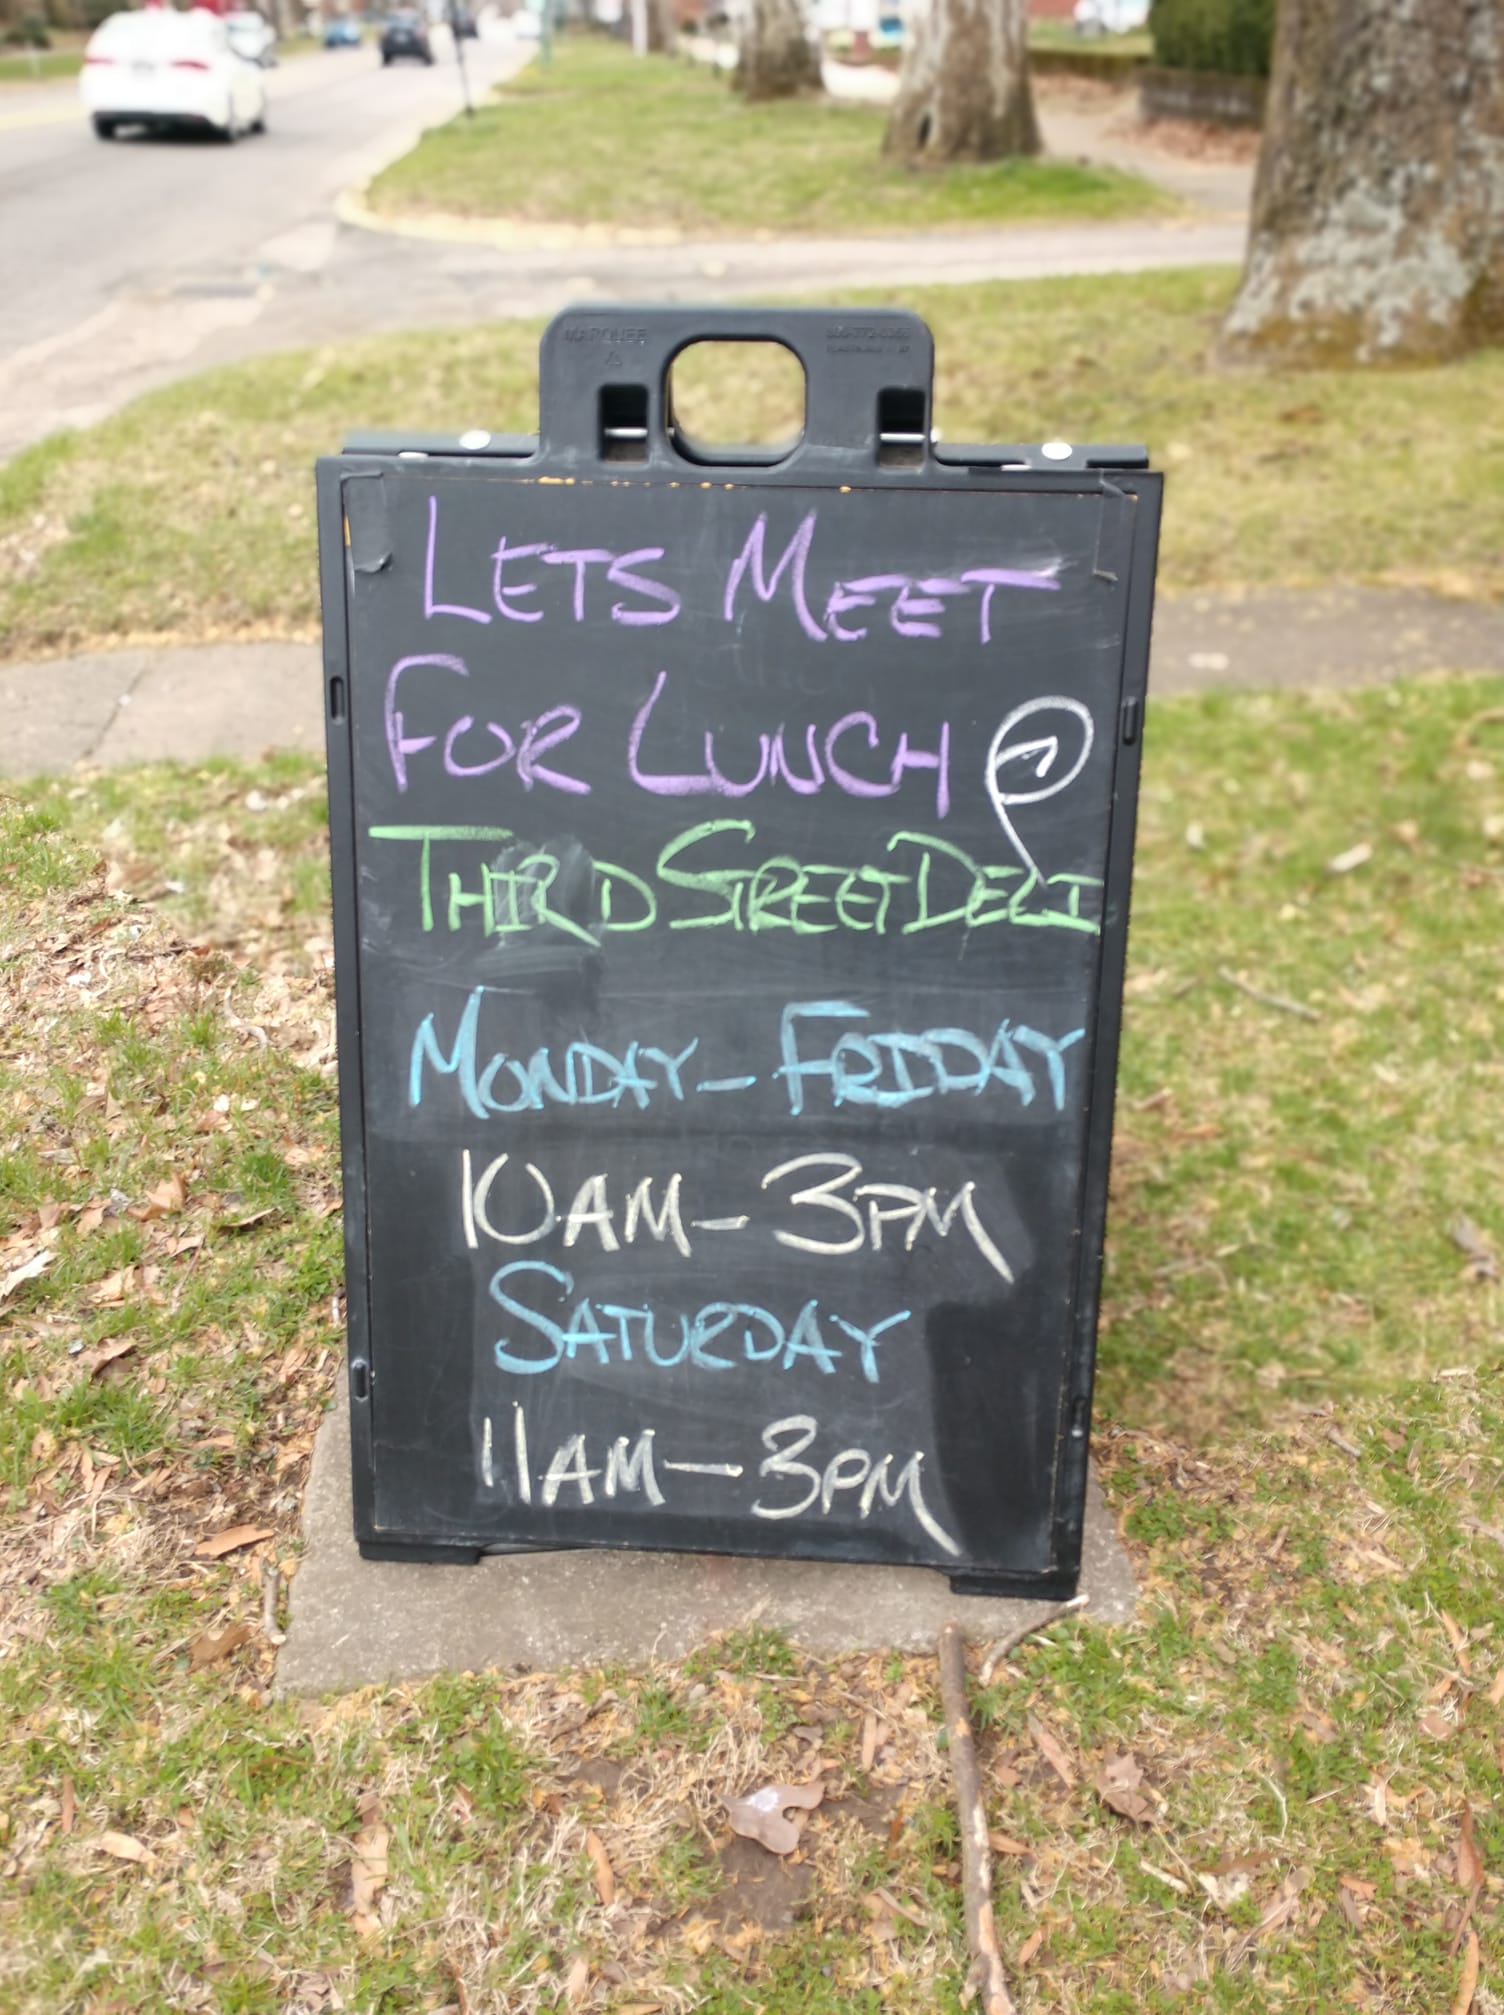 MARQUEE
LETS MEET
FOR LUNCH @
THIRD STREET DELI
MONDAY - FRIDAY
10AM - 3PM
SATURDAY
11AM - 3PM